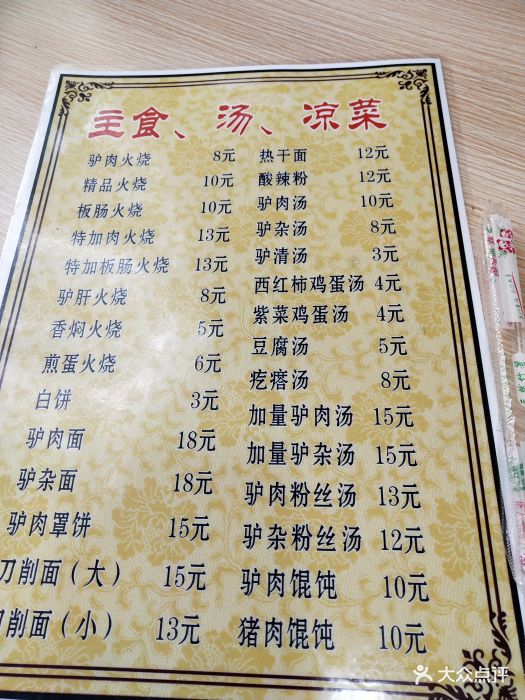 主食、汤、凉菜
驴肉火烧 8元
精品火烧 10元
板肠火烧 10元
特加肉火烧 13元
特加板肠火烧 13元
驴肝火烧 8元
香焖火烧 5元
煎蛋火烧 6元
白饼 3元
驴肉面 18元
驴杂面 18元
驴肉罩饼 15元
刀削面（大） 15元
削面（小） 13元
热干面 12元
酸辣粉 12元
驴肉汤 10元
驴杂汤 8元
驴清汤 3元
西红柿鸡蛋汤 4元
紫菜鸡蛋汤 4元
豆腐汤 5元
疙瘩汤 8元
加量驴肉汤 15元
加量驴杂汤 15元
驴肉粉丝汤 13元
驴杂粉丝汤 12元
驴肉馄饨 10元
猪肉馄饨 10元
大众点评